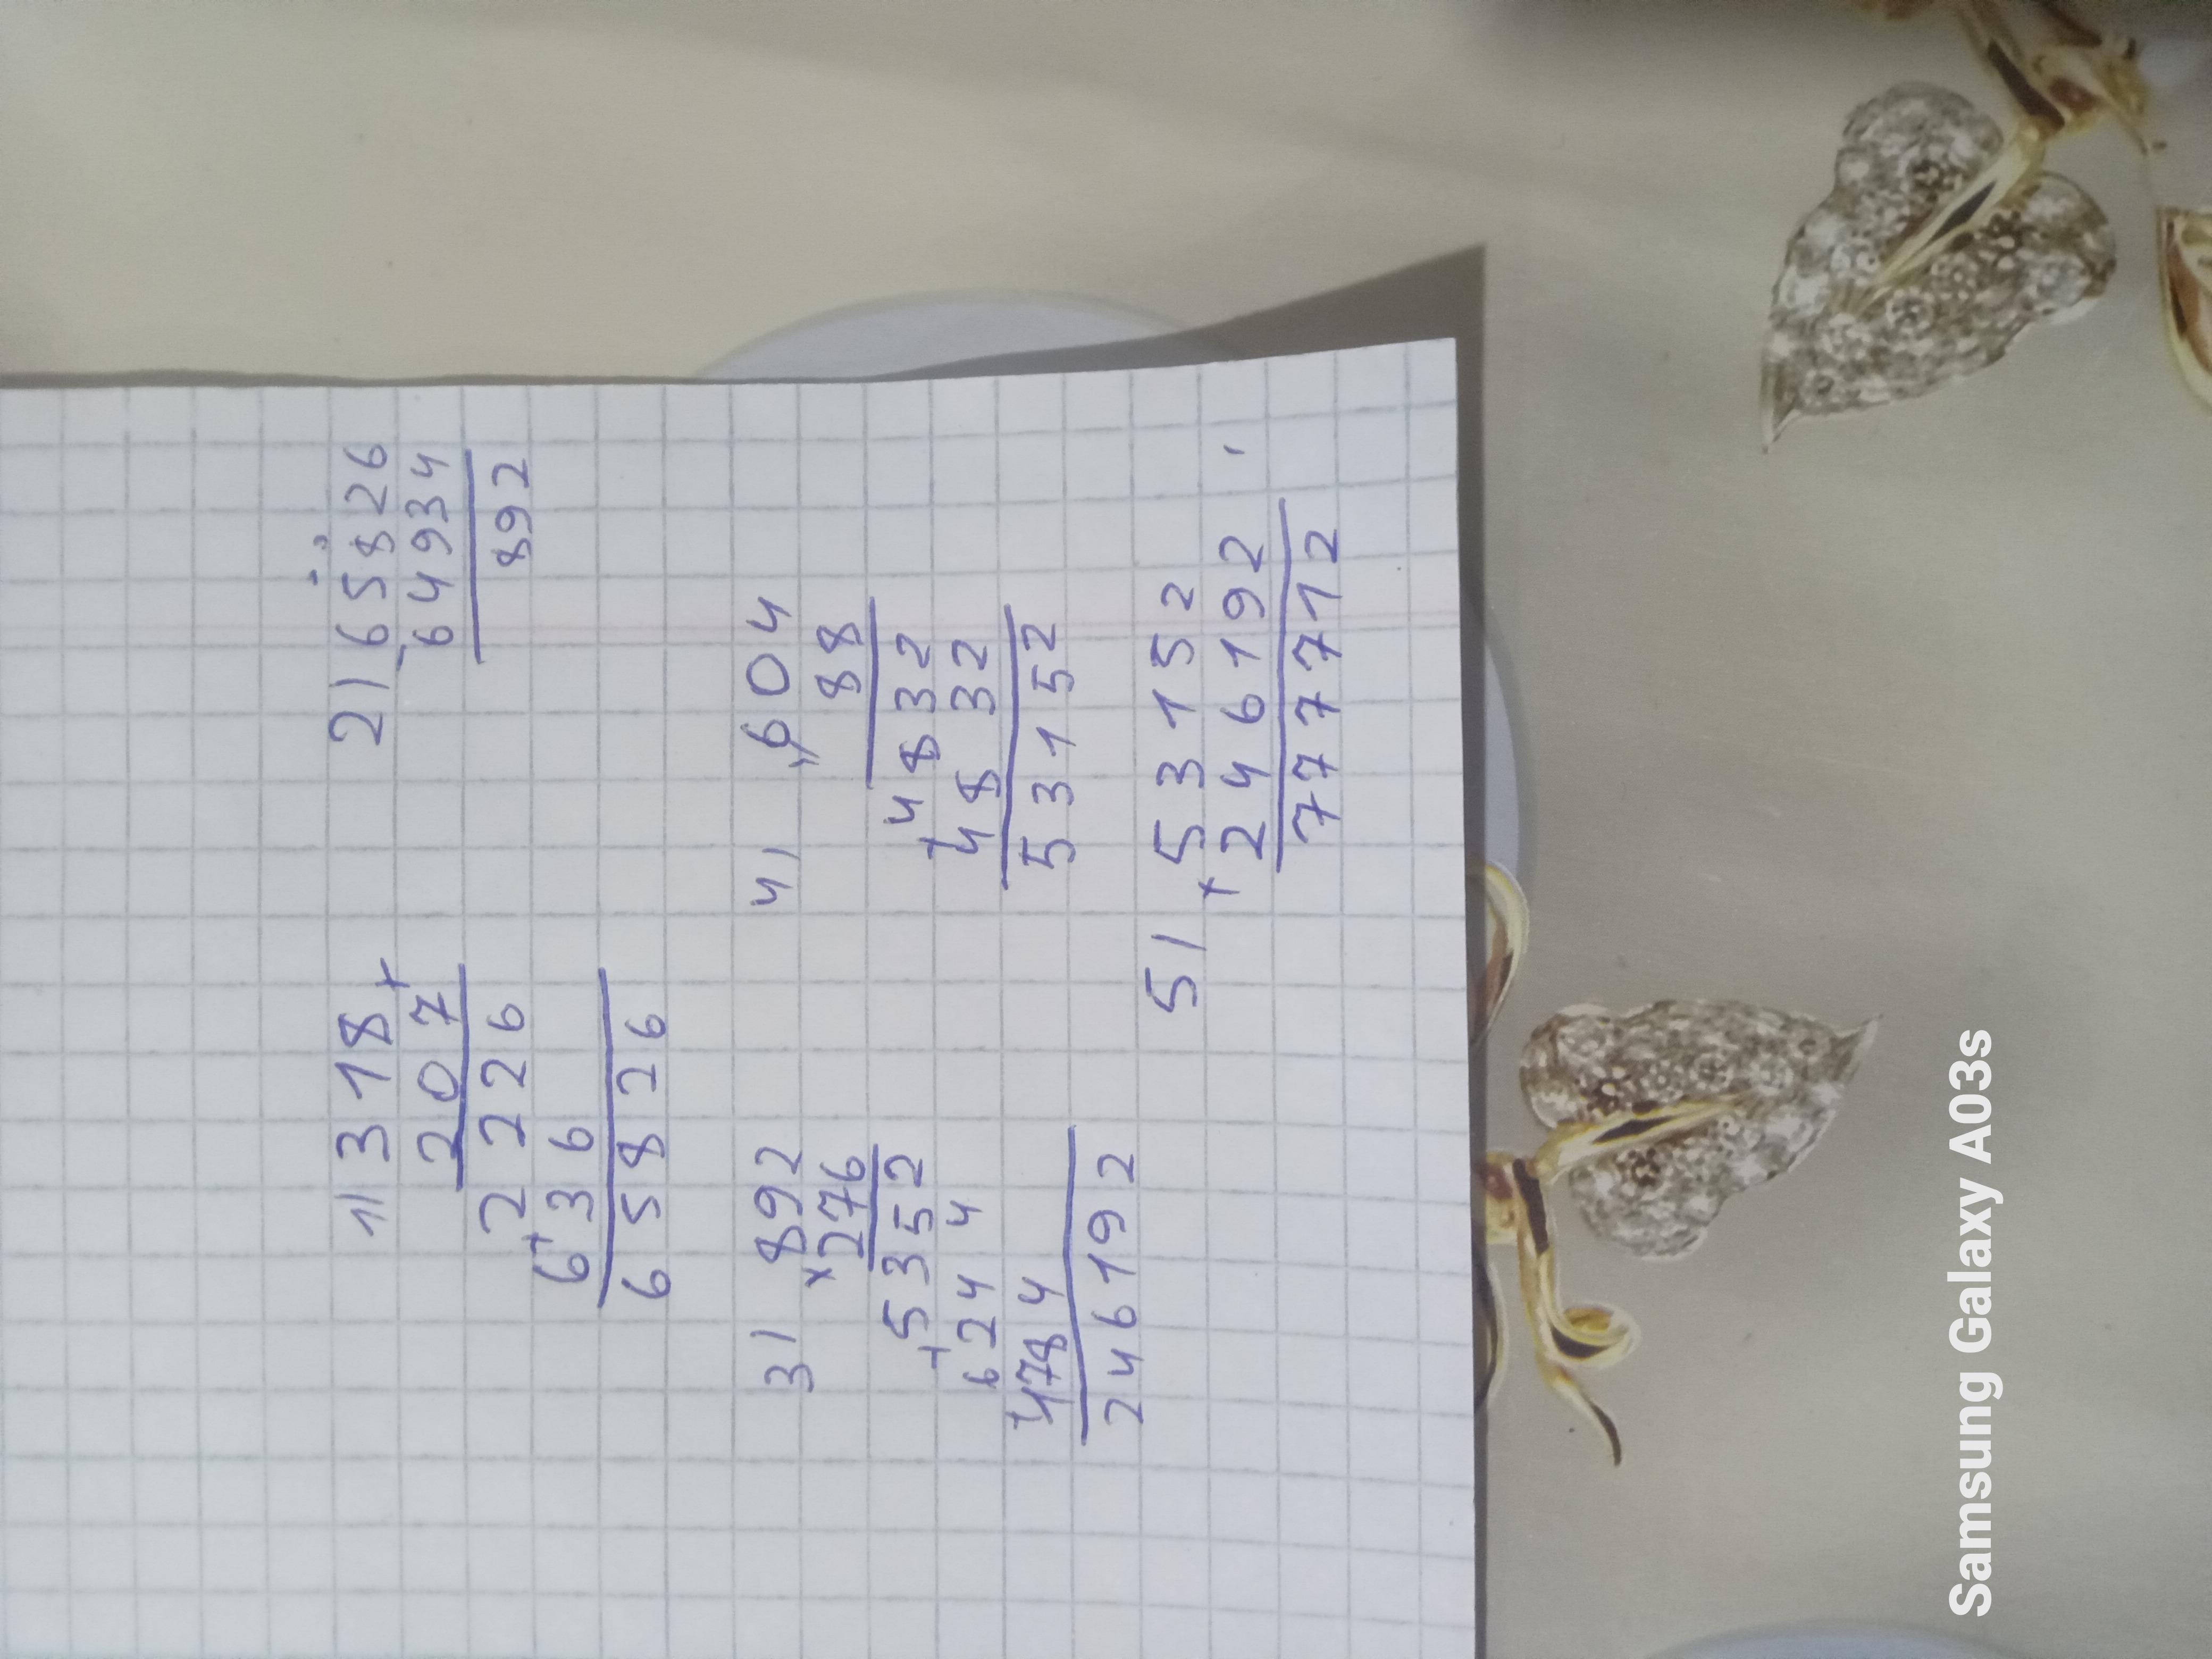 1) 318
× 207
2226
+
636
65826
2) 65826
- 64934
892
3) 892
× 276
5352
+
6244
+
1784
246192
4) 604
× 88
4832
+
4832
53152
5) 53152
+ 246192
777712
Samsung Galaxy A03s